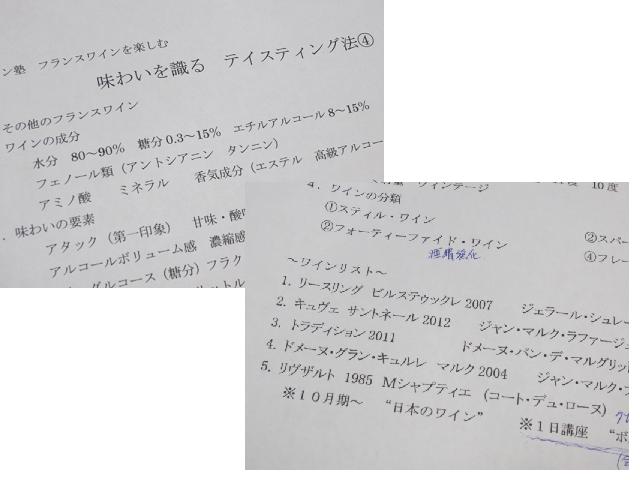 ン塾 フランスワインを楽しむ
味わいを識る テイスティング法④
その他のフランスワイン
ワインの成分
水分 80～90% 糖分0.3～15% エチルアルコール8～15%
フェノール類（アントシアニン タンニン）
アミノ酸 ミネラル 香気成分（エステル 高級アルコー
味わいの要素
アタック（第一印象） 甘味・酸
アルコールボリューム感 濃縮感
グルコース（糖分）フラク
4. ワインの分類
①スティル・ワイン
②スパー
②フォーティーファイド・ワイン
④フレー
酒精強化
～ワインリスト～
1. リースリング ビルステゥックレ 2007 ジェラール・シュレー
2. キュヴェ サントネール 2012 ジャン・マルク・ラファージュ
3. トラディション 2011 ドメーヌ・パン・デ・マルグリット
4. ドメーヌ・グラン・キュルレ マルク 2004 ジャン・マルク・
5. リヴザルト 1985 Mシャプティエ （コート・デュ・ローヌ）
※１０月期～ “日本のワイン”
※１日講座 “ボ